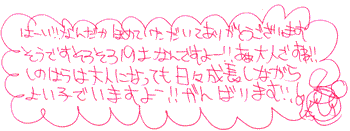 はーい!!なんだか ほめていただいてありがとうございます
そうですそろそろ19はなんですよー!!あぁ大人ですねぇ!!
しのはらは大人になっても日々成長しながら
よい子でいますよー!!がんばります!!